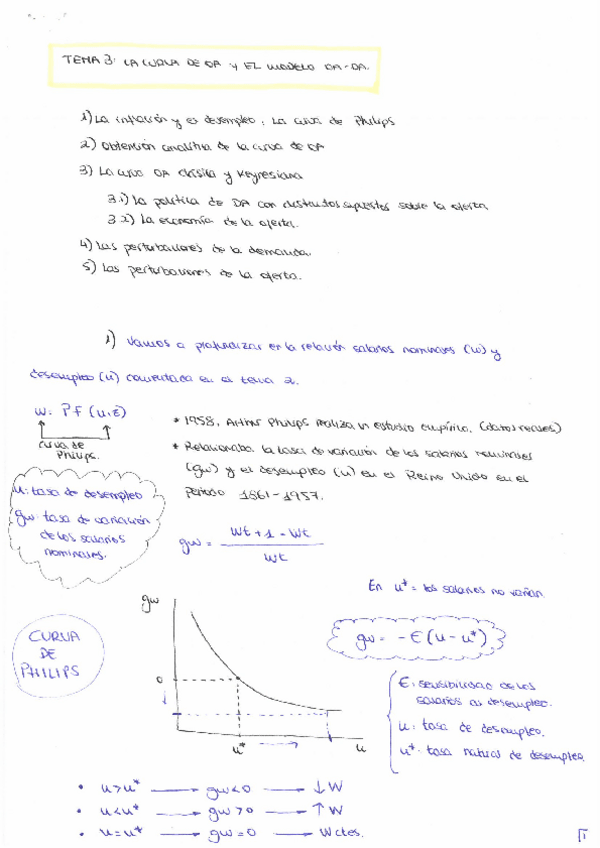 TEMA 3: LA CURVA DE OA Y EL MODELO OA-DA.
1) La inflación y el desempleo: La curva de Philips
2) Obtención analítica de la curva de OA
3) La curva OA clásica y Keynesiana
3.1) La política de DA con distintos supuestos sobre la oferta
3.2) La economía de la oferta.
4) Las perturbaciones de la demanda.
5) Las perturbaciones de la oferta.
1) Vamos a profundizar en la relación salarios nominales (w) y
desempleo (u) comentada en el tema 2.
w = Pf (u, z)
curva de
Philips.
* 1958, Arthur Philips realiza un estudio empírico. (datos reales)
* Relacionaba la tasa de variación de los salarios nominales
(gw) y el desempleo (u) en el Reino Unido en el
periodo 1861-1957.
u: tasa de desempleo
gw: tasa de variación
de los salarios
nominales.
gw = Wt+1 - Wt
Wt
En u* = los salarios no varían.
gw = -E(u-u*)
CURVA
DE
PHILIPS
gw
0
u*
u
E: sensibilidad de los
salarios al desempleo.
u: tasa de desempleo.
u*: tasa natural de desempleo.
• u>u* → gw<0 → ↓W
• u<u* → gw>0 → ↑W
• u=u* → gw=0 → W ctes.
1